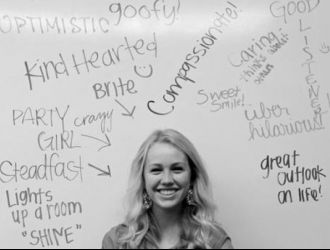 OPTIMISTIC
goofy!
Compassionate!
GOOD LISTENER
Kind Hearted
Brite
Caring
things
Sweet
Smile!
uber
hilarious!
PARTY crazy
GIRL
Steadfast
great
outlook
on life!
Lights
up a room
"SHINE"